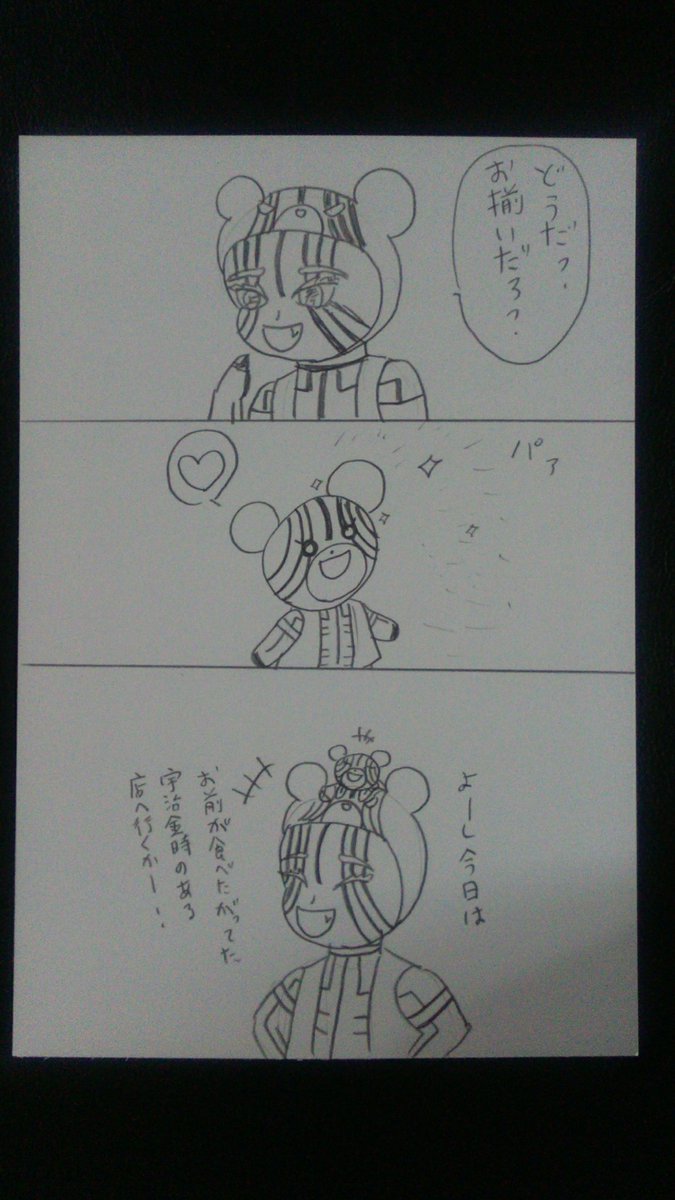 どうだっ.
お揃いだろっ?
パァ
よーし今日は
お前が食べたがってた
宇治金時のある
店へ行くかー!